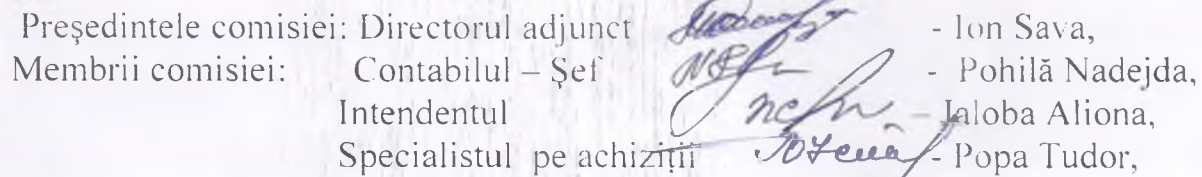 Președintele comisiei: Directorul adjunct - Ion Sava,
Membrii comisiei: Contabilul – Șef - Pohilă Nadejda,
Intendentul – Ialoba Aliona,
Specialistul pe achiziții - Popa Tudor,